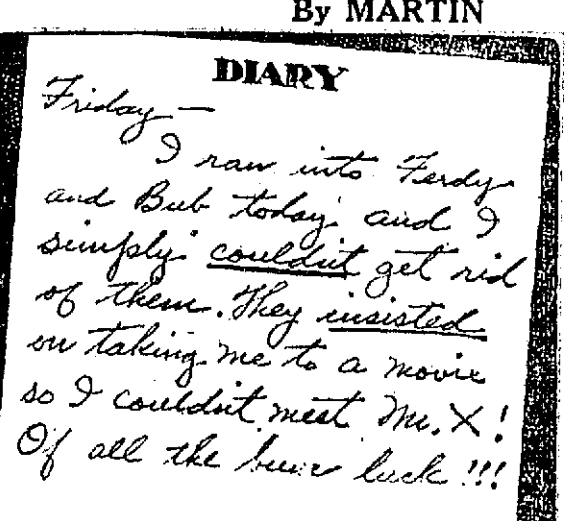 By MARTIN
DIARY
Friday —
I ran into Ferdy
and Bub today and I
simply couldn't get rid
of them. They insisted
on taking me to a movie
so I couldn't meet Mr. X!
Of all the bum luck!!!